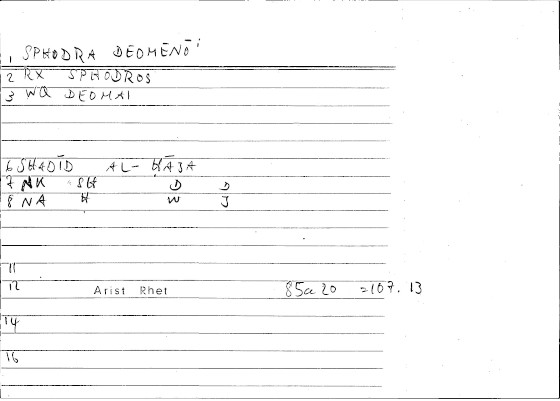 1 SPHODRA DEOMENŌi
2 RX SPHODROS
3 WQ DEOMAI
6 SHADĪD AL-ḤĀJA
7 NK SH D D
8 NA Ḥ W J
11
12 Arist Rhet 85a20 =107.13
14
16